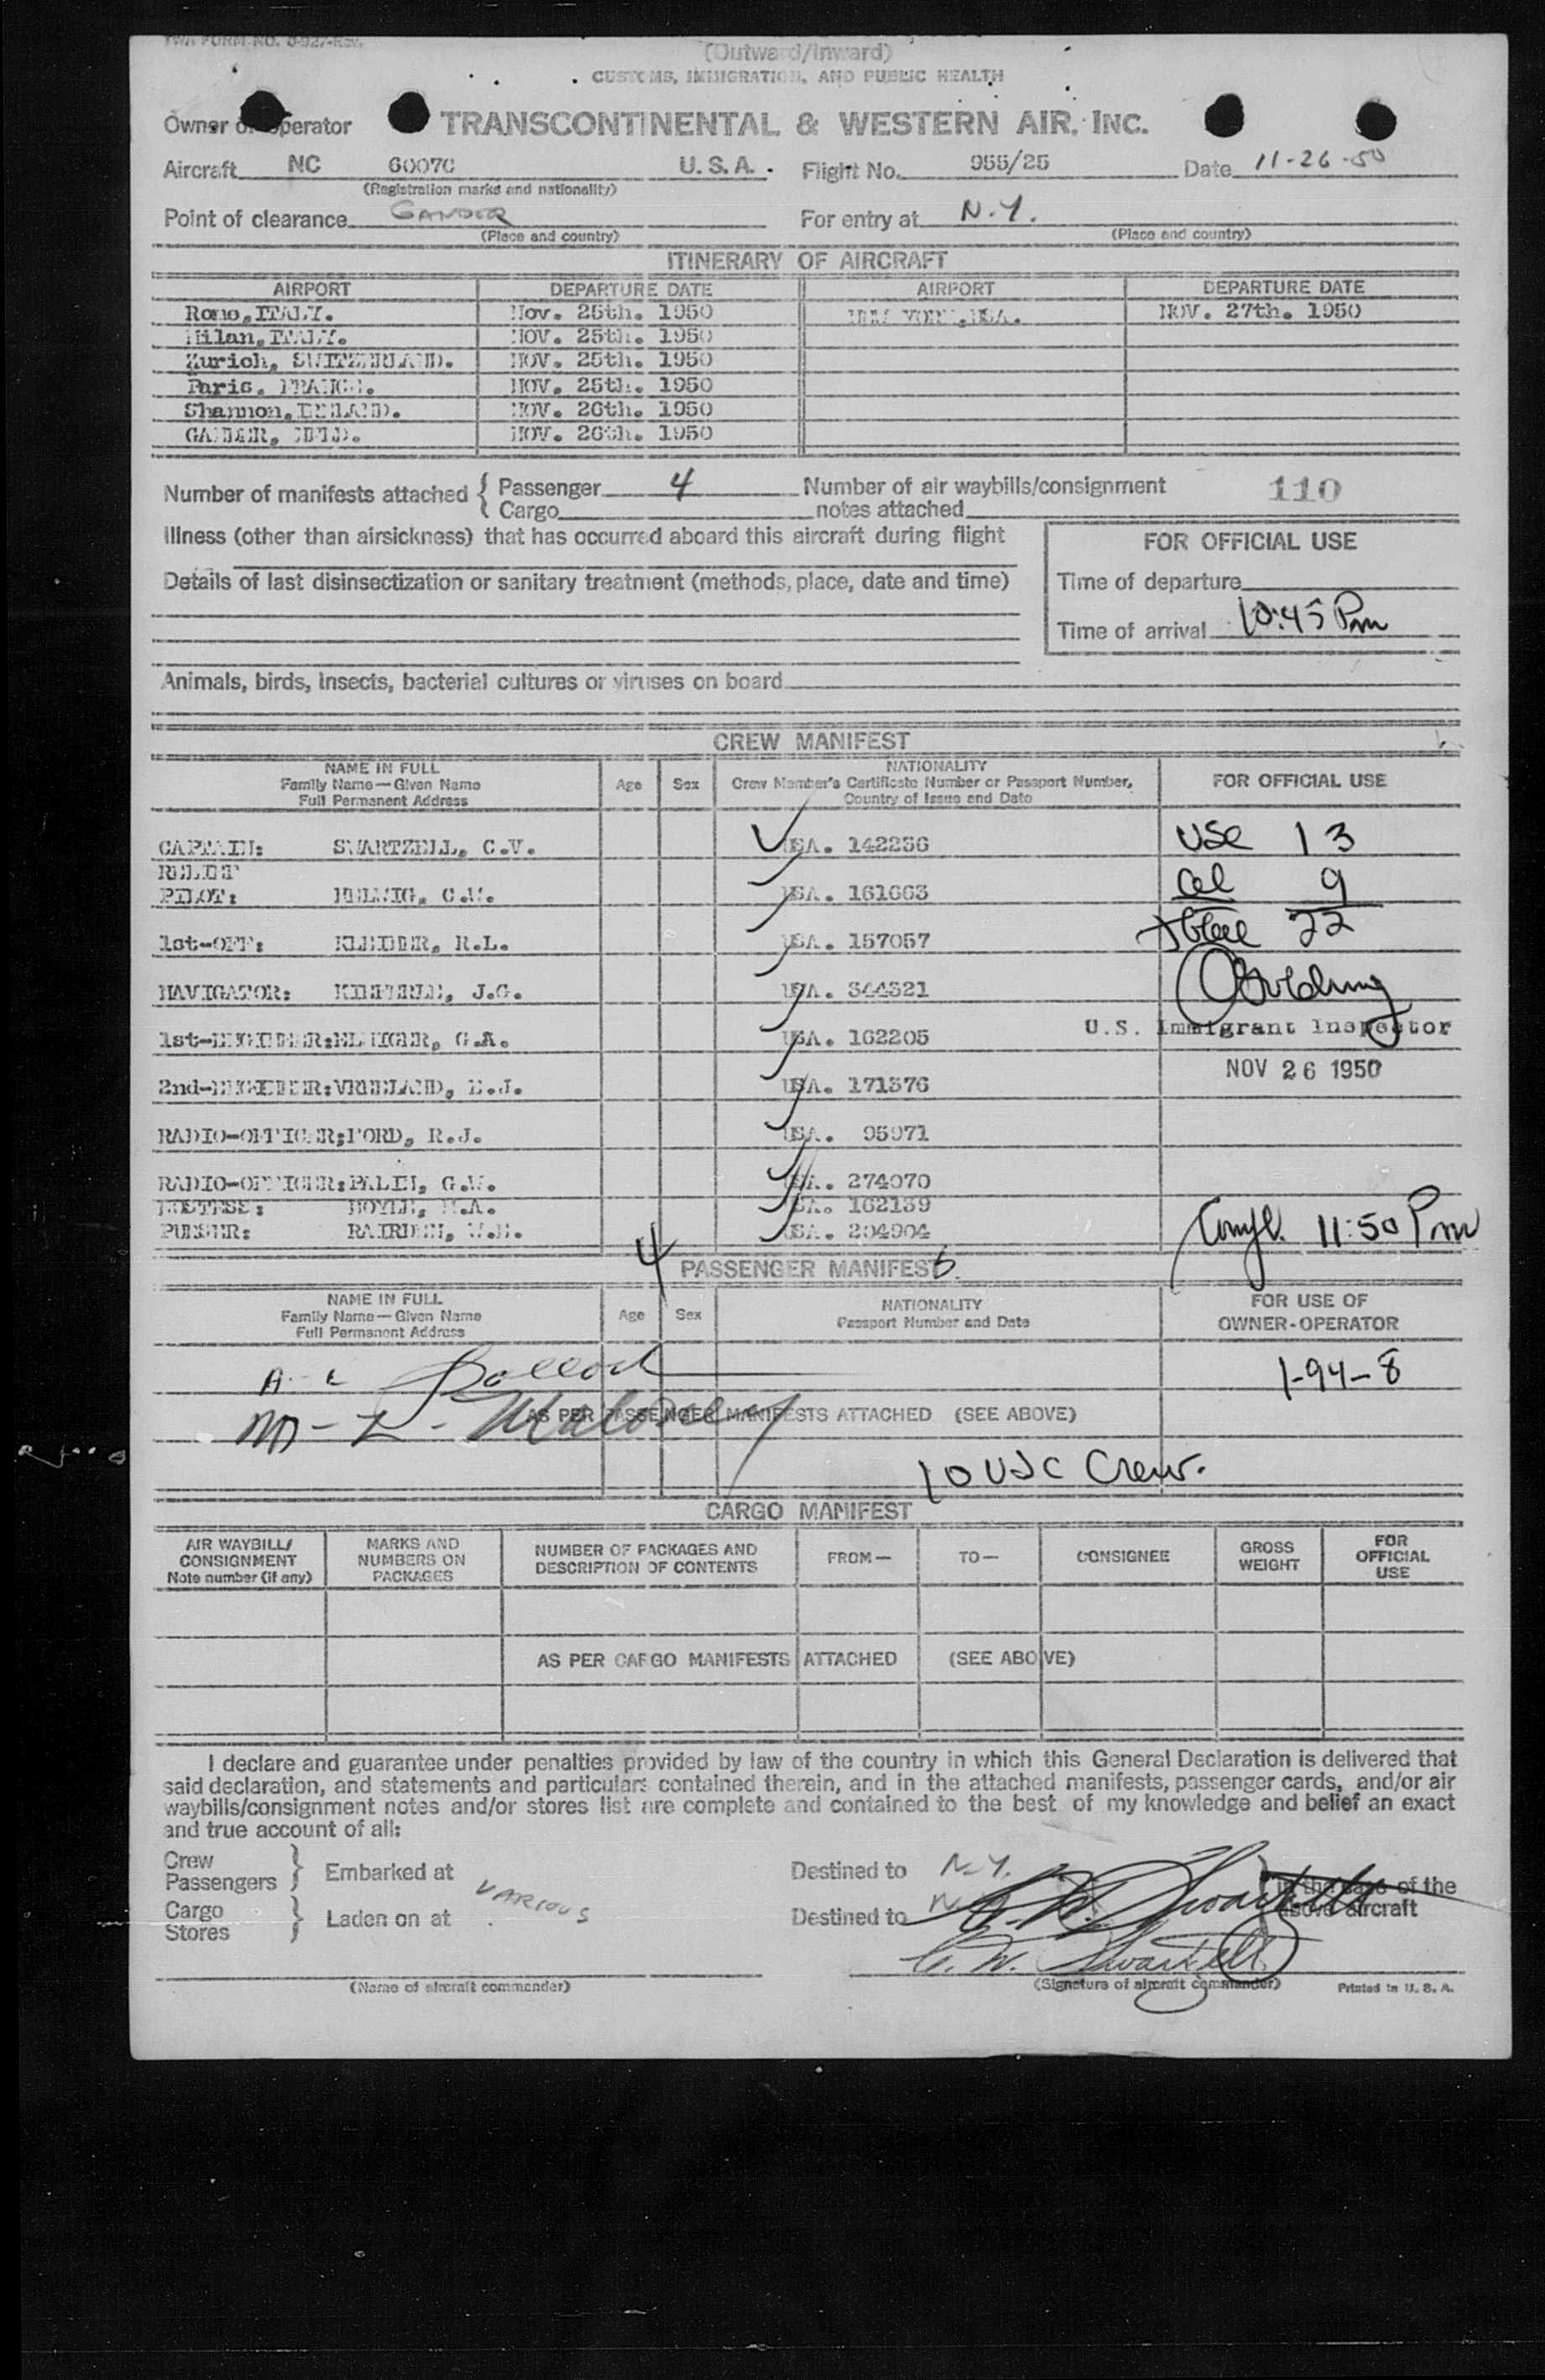 TWA FORM NO. 0-927-Rev.
(Outward/Inward)
CUSTOMS, IMMIGRATION, AND PUBLIC HEALTH
Owner or Operator TRANSCONTINENTAL & WESTERN AIR, INC.
Aircraft NC 6007C U.S.A. Flight No. 955/25 Date 11-26-50
(Registration marks and nationality)
Point of clearance GANDER For entry at N.Y.
(Place and country) (Place and country)
ITINERARY OF AIRCRAFT
AIRPORT DEPARTURE DATE AIRPORT DEPARTURE DATE
Rome, ITALY. Nov. 25th. 1950 NEW YORK, USA. NOV. 27th. 1950
Milan, ITALY. NOV. 25th. 1950
Zurich, SWITZERLAND. NOV. 25th. 1950
Paris, FRANCE. NOV. 25th. 1950
Shannon, IRELAND. NOV. 26th. 1950
GANDER, NFLD. NOV. 26th. 1950
Number of manifests attached { Passenger 4 Number of air waybills/consignment 110
Cargo notes attached
Illness (other than airsickness) that has occurred aboard this aircraft during flight
FOR OFFICIAL USE
Details of last disinsectization or sanitary treatment (methods, place, date and time)
Time of departure
Time of arrival 10:45 Pm
Animals, birds, insects, bacterial cultures or viruses on board
CREW MANIFEST
NAME IN FULL
Family Name—Given Name
Full Permanent Address
Age Sex
NATIONALITY
Crew Member's Certificate Number or Passport Number,
Country of Issue and Date
FOR OFFICIAL USE
CAPTAIN: SWARTZELL, C.W. USA. 142256 USC 13
RELIEF
PILOT: HELWIG, C.W. USA. 161663 9
1st-OFF: R.L. USA. 157057 22
NAVIGATOR: J.G. USA. 344321
U.S. Immigrant Inspector
1st-ENGINEER: G.A. USA. 162205
NOV 26 1950
2nd-ENGINEER: VREELAND, E.J. USA. 171376
RADIO-OFFICER: FORD, R.J. USA. 95971
RADIO-OFFICER: PALIN, G.W. USA. 274070
HOSTESS: USA. 162139
PURSER: USA. 204904
Compl. 11:50 Pm
4 PASSENGER MANIFEST
NAME IN FULL
Family Name—Given Name
Full Permanent Address
Age Sex
NATIONALITY
Passport Number and Date
FOR USE OF
OWNER-OPERATOR
1-94-8
AS PER PASSENGER MANIFESTS ATTACHED (SEE ABOVE)
10 USC Crew.
CARGO MANIFEST
AIR WAYBILL/
CONSIGNMENT
Note number (if any)
MARKS AND
NUMBERS ON
PACKAGES
NUMBER OF PACKAGES AND
DESCRIPTION OF CONTENTS
FROM— TO— CONSIGNEE
GROSS
WEIGHT
FOR
OFFICIAL
USE
AS PER CARGO MANIFESTS ATTACHED (SEE ABOVE)
I declare and guarantee under penalties provided by law of the country in which this General Declaration is delivered that
said declaration, and statements and particulars contained therein, and in the attached manifests, passenger cards, and/or air
waybills/consignment notes and/or stores list are complete and contained to the best of my knowledge and belief an exact
and true account of all:
Crew
Passengers } Embarked at VARIOUS Destined to N.Y.
in the case of the
above aircraft
Cargo
Stores } Laden on at Destined to
C.W. Swartzell
C. W. Swartzell
(Name of aircraft commander) (Signature of aircraft commander) Printed in U. S. A.